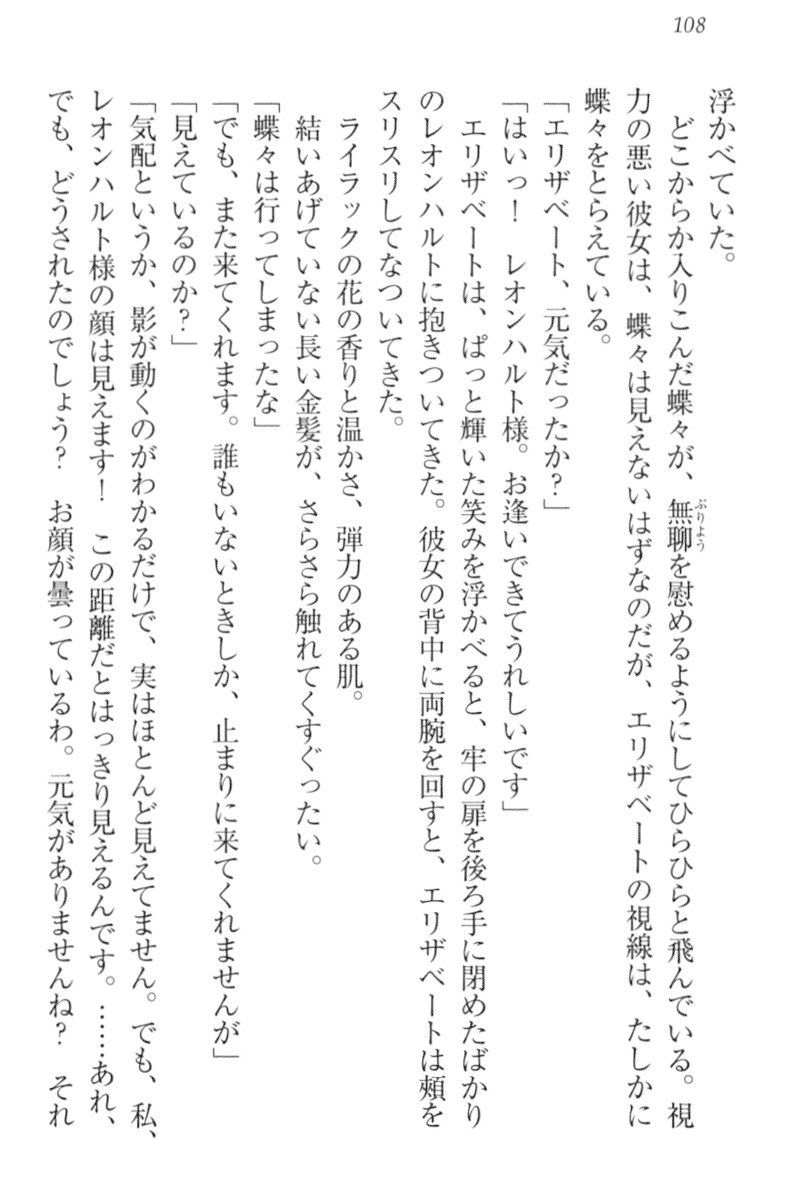 108
浮かべていた。
　どこからか入りこんだ蝶々が、無聊を慰めるようにしてひらひらと飛んでいる。視
ぶりよう
力の悪い彼女は、蝶々は見えないはずなのだが、エリザベートの視線は、たしかに
蝶々をとらえている。
「エリザベート、元気だったか？」
「はいっ！　レオンハルト様。お逢いできてうれしいです」
　エリザベートは、ぱっと輝いた笑みを浮かべると、牢の扉を後ろ手に閉めたばかり
のレオンハルトに抱きついてきた。彼女の背中に両腕を回すと、エリザベートは頰を
スリスリしてなついてきた。
　ライラックの花の香りと温かさ、弾力のある肌。
　結いあげていない長い金髪が、さらさら触れてくすぐったい。
「蝶々は行ってしまったな」
「でも、また来てくれます。誰もいないときしか、止まりに来てくれませんが」
「見えているのか？」
「気配というか、影が動くのがわかるだけで、実はほとんど見えてません。でも、私、
レオンハルト様の顔は見えます！　この距離だとはっきり見えるんです。……あれ、
でも、どうされたのでしょう？　お顔が曇っているわ。元気がありませんね？　それ